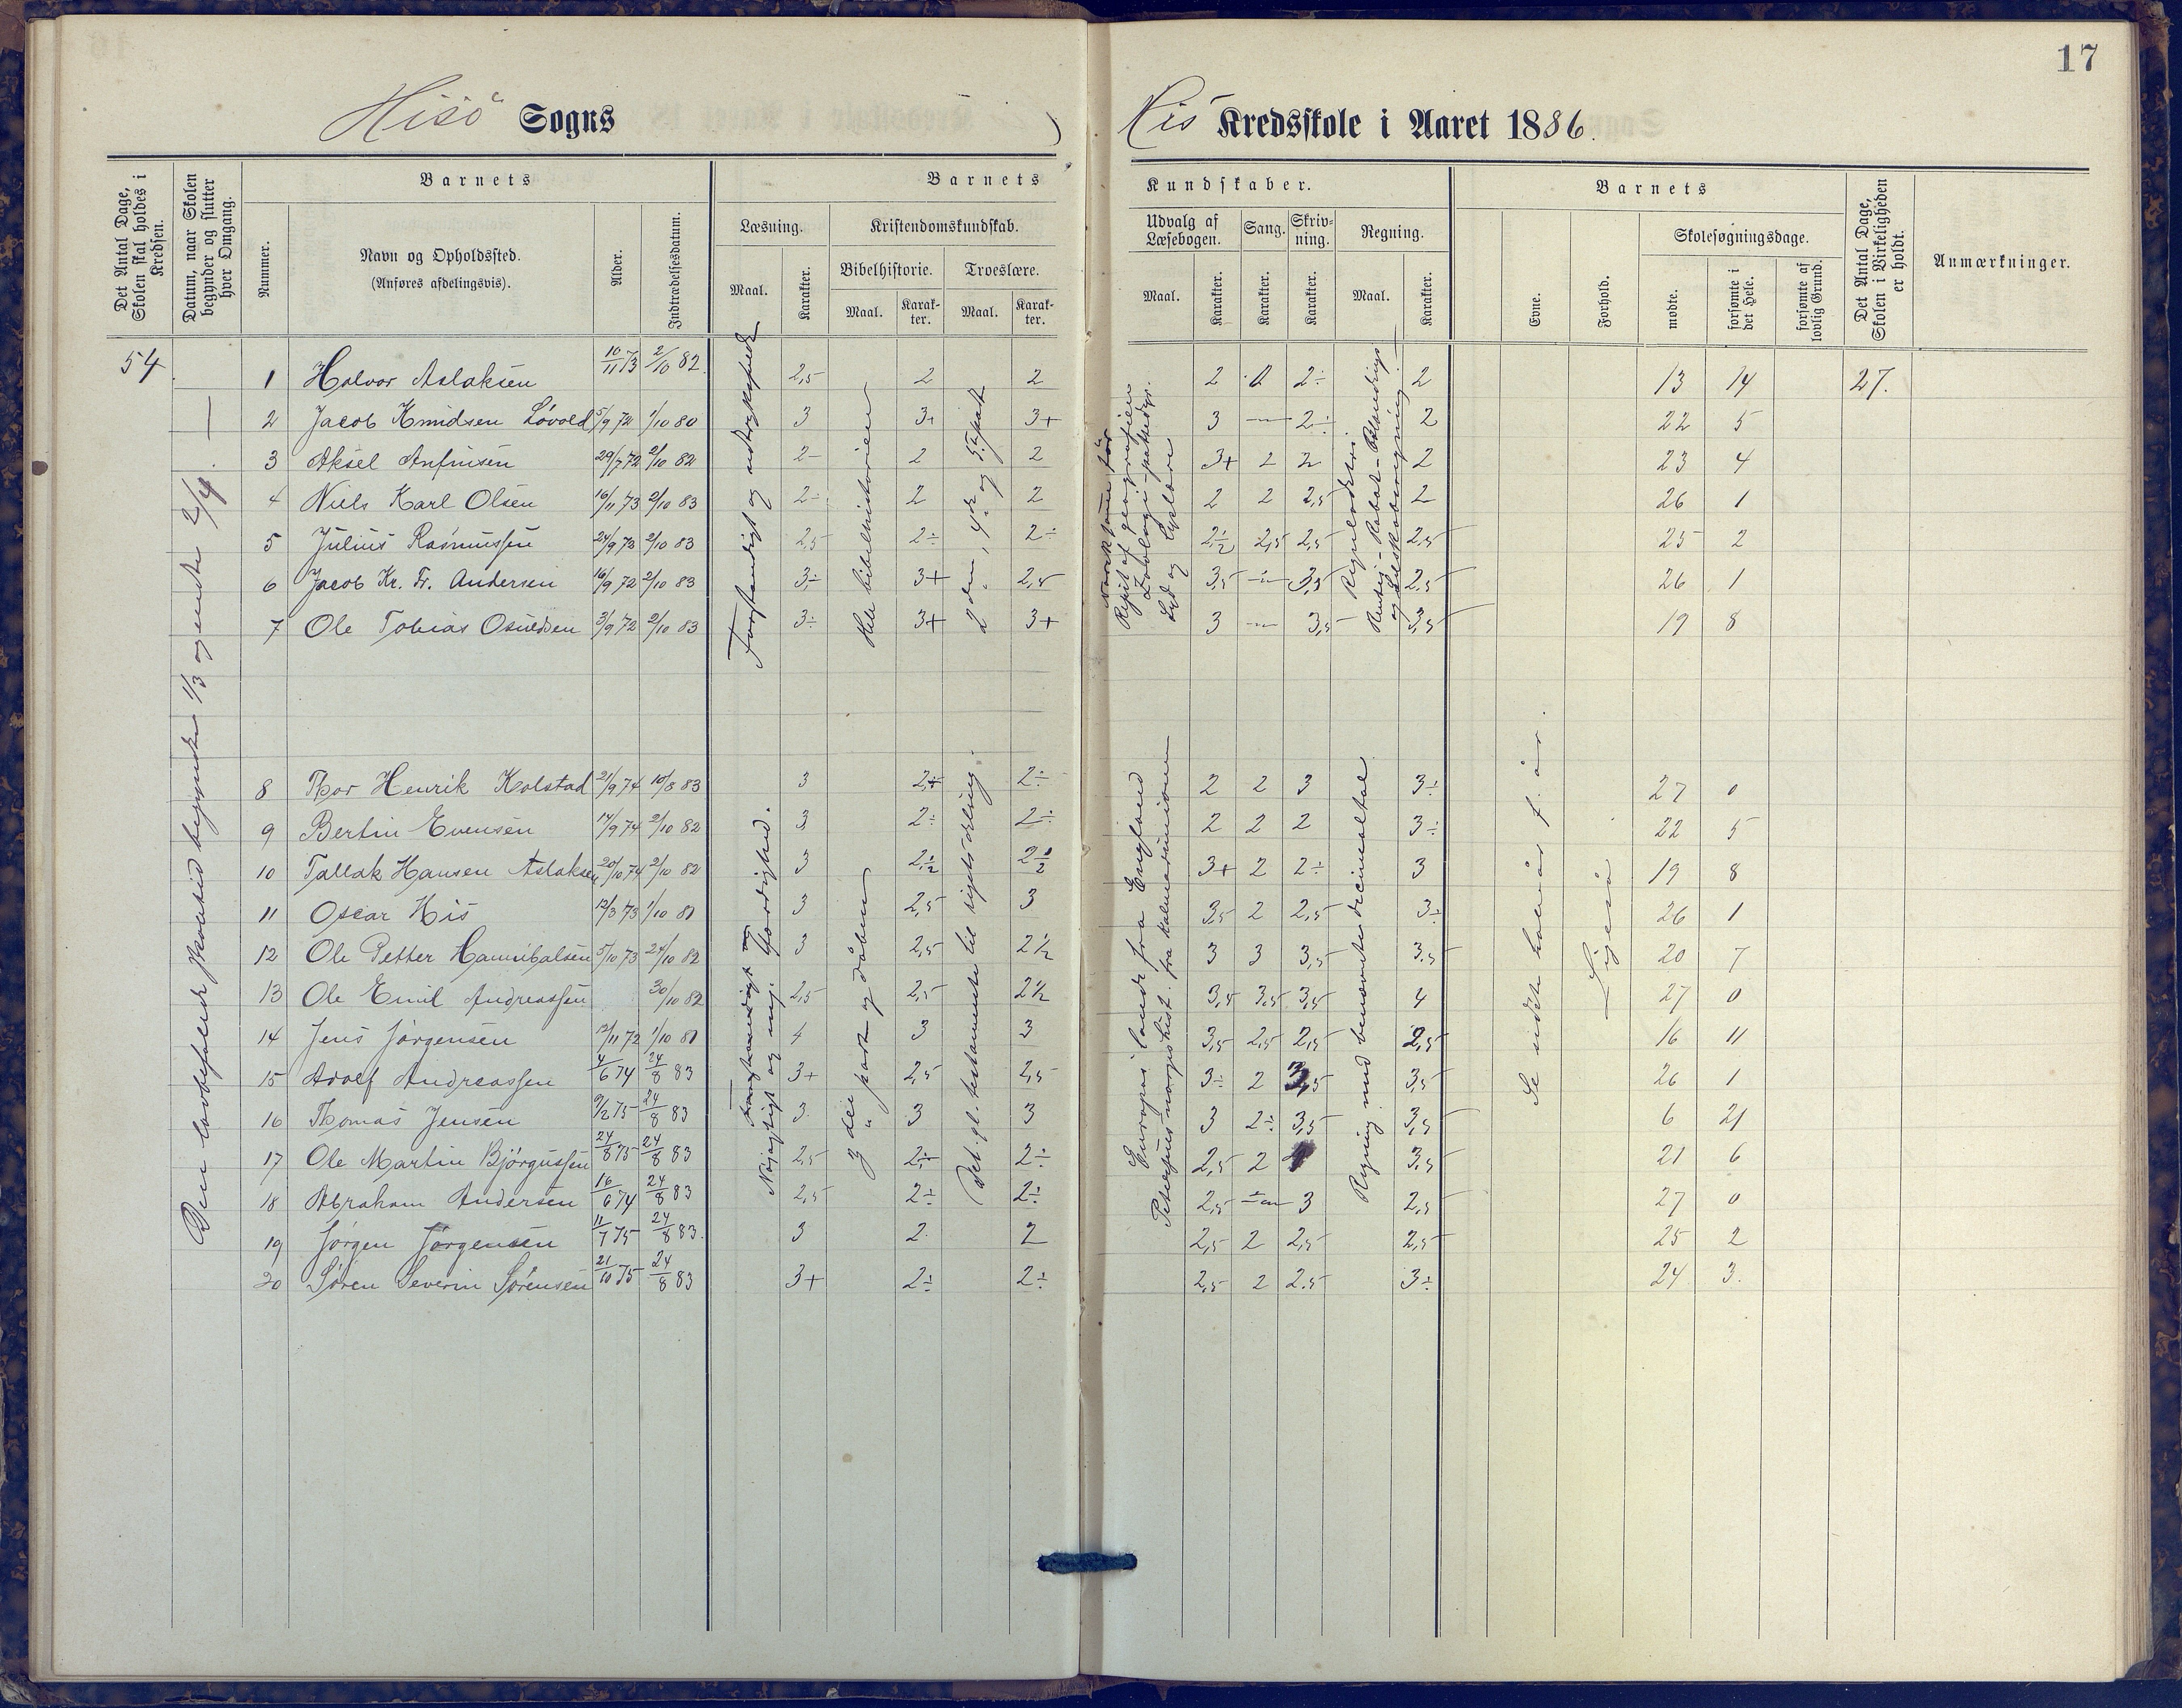 17
Hisö Sogns
His Kredsskole i Aaret 1886.
Det Antal Dage, Skolen skal holdes i Kredsen.
Datum, naar Skolen begynder og slutter hver Omgang.
Barnets
Nummer.
Navn og Opholdssted.
(Anføres afdelingsvis).
Alder.
Indtrædelsesdatum.
Barnets
Læsning.
Maal.
Karakter.
Kristendomskundskab.
Bibelhistorie.
Maal.
Karakter.
Troeslære.
Maal.
Karakter.
Kundskaber.
Udvalg af Læsebogen.
Maal.
Karakter.
Sang.
Karakter.
Skrivning.
Karakter.
Regning.
Maal.
Karakter.
Barnets
Evne.
Forhold.
Skolesøgningsdage.
mødte.
forsømte i det Hele.
forsømte af lovlig Grund.
Det Antal Dage, Skolen i Virkeligheden er holdt.
Anmærkninger.
54
Den lovbefalede skoletid begyndte 1/3 og endte 2/4
1 Halvor Aslaksen 10/11 73 2/10 82. 2,5 2 2 2 2 2÷ 2 13 14 27.
2 Jacob Knudsen Lövold 5/9 72 1/10 80 3 3+ 3+ 3 — 2÷ 2 22 5
3 Aksel Anfinsen 29/7 72 2/10 82 2- 2 2 3+ 2 2 2 23 4
4 Niels Karl Olsen 16/11 73 2/10 83 2÷ 2 2 2 2 2,5 2 26 1
5 Julius Rasmussen 24/9 73 2/10 83 2,5 2÷ 2÷ 2½ 2,5 2,5 2,5 25 2
6 Jacob Kr. Fr. Andersen 16/9 72 2/10 83 3÷ 3+ 2,5 3,5 — 3,5 2,5 26 1
7 Ole Tobias Osuldsen 3/9 72 2/10 83 3÷ 3+ 3+ 3 — 3,5 3,5 19 8
Forstandigt og udtryksfuldt
Hele bibelhistorien
2den, 4de og 5te part
Norsk
Repit af geografien
Zoologi - pattedyr.
Lyd og Lyslære
Reguladetri
Rentes- Rabat- Blandings
og Selskabsregning
8 Thor Henrik Kolstad 21/9 74 10/8 83 3 2÷ 2÷ 2 2 3 3÷ 27 0
9 Bertin Evensen 14/9 74 2/10 82 3 2÷ 2÷ 2 2 2 3÷ 22 5
10 Tallak Hansen Aslaksen 20/10 74 2/10 82 3 2½ 2½ 3+ 2 2÷ 3 19 8
11 Oscar His 12/3 73 1/10 81 3 2,5 3 3,5 2 2,5 3÷ 26 1
12 Ole Petter Hannibalsen 5/10 73 24/10 82 3 2,5 2½ 3 3 3,5 3,5 20 7
13 Ole Emil Andreassen 30/10 82 2,5 2,5 2½ 3,5 3,5 3,5 4 27 0
14 Jens Jörgensen 12/11 72 1/10 81 4 3 3 3,5 2,5 2,5 2,5 16 11
15 Adolf Andreassen 4/6 74 24/8 83 3+ 2,5 2,5 3÷ 2 3,5 3,5 26 1
16 Thomas Jensen 9/2 75 24/8 83 3 3 3 3 2÷ 3,5 3,5 6 21
17 Ole Martin Bjørgussen 24/8 75 24/8 83 2,5 2÷ 2÷ 2,5 2 3,5 21 6
18 Abraham Andersen 16/6 74 24/8 83 2,5 2÷ 2÷ 2,5 — 3 2,5 27 0
19 Jörgen Jörgensen 11/7 75 24/8 83. 3 2. 2 2,5 2 2,5 2,5 25 2
20 Sören Severin Sörensen 21/10 75 24/8 83 3+ 2÷ 2÷ 2,5 2 2.5 3÷ 24 3.
Nöjagtigt og m. færdighed.
3die part og dåben
Det gl. testamente til rigets deling
Europas lande fra England
Petersens norgeshist. fra Kalmarunionen
Regning med benævnte decimaltal
Se sidste halvår f. år.
Ligeså